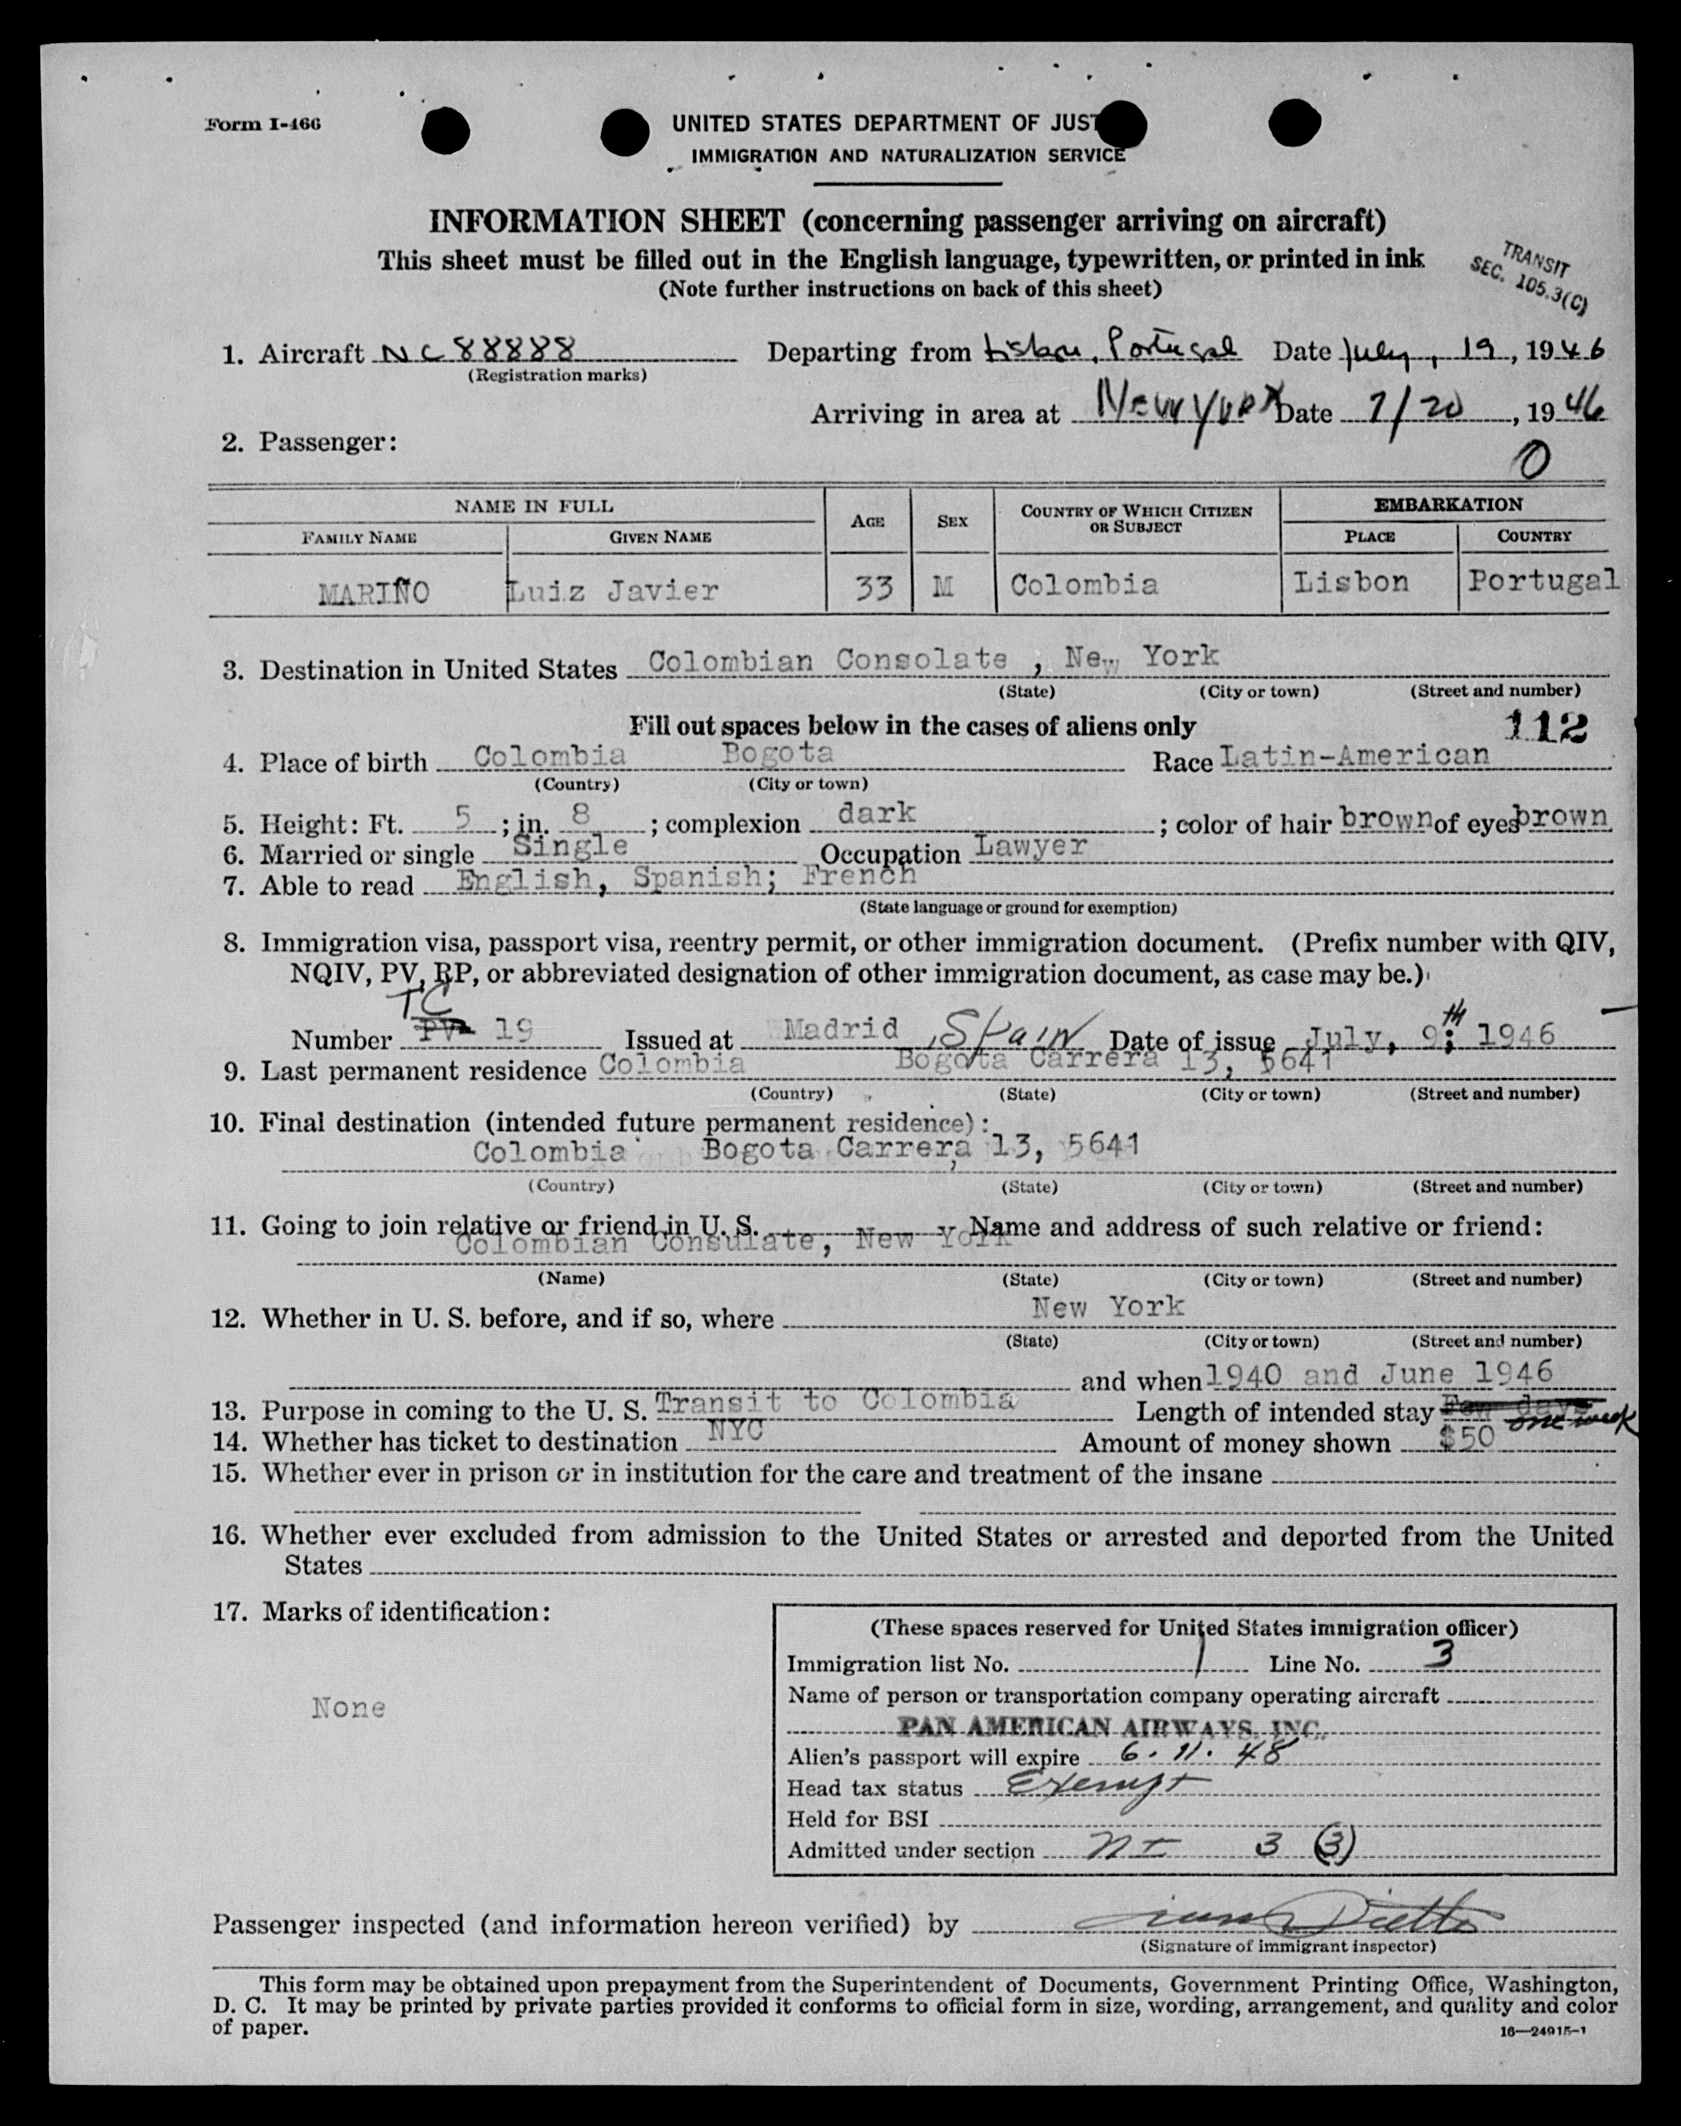 Form I-466
UNITED STATES DEPARTMENT OF JUST
IMMIGRATION AND NATURALIZATION SERVICE
INFORMATION SHEET (concerning passenger arriving on aircraft)
This sheet must be filled out in the English language, typewritten, or printed in ink
(Note further instructions on back of this sheet)
TRANSIT
SEC. 105.3(C)
1. Aircraft NC 88888 Departing from Lisbon, Portugal Date July, 19, 1946
(Registration marks)
Arriving in area at New York Date 7/20, 1946
2. Passenger:
0
NAME IN FULL AGE SEX COUNTRY OF WHICH CITIZEN OR SUBJECT EMBARKATION
FAMILY NAME GIVEN NAME PLACE COUNTRY
MARIÑO Luiz Javier 33 M Colombia Lisbon Portugal
3. Destination in United States Colombian Consolate , New York
(State) (City or town) (Street and number)
Fill out spaces below in the cases of aliens only 112
4. Place of birth Colombia Bogota Race Latin-American
(Country) (City or town)
5. Height: Ft. 5 ; in. 8 ; complexion dark ; color of hair brown of eyes brown
6. Married or single Single Occupation Lawyer
7. Able to read English, Spanish; French
(State language or ground for exemption)
8. Immigration visa, passport visa, reentry permit, or other immigration document. (Prefix number with QIV,
NQIV, PV, RP, or abbreviated designation of other immigration document, as case may be.)
TC
Number PV 19 Issued at Madrid, Spain Date of issue July, 9th; 1946
9. Last permanent residence Colombia Bogota Carrera 13, 5641
(Country) (State) (City or town) (Street and number)
10. Final destination (intended future permanent residence):
Colombia Bogota Carrera 13, 5641
(Country) (State) (City or town) (Street and number)
11. Going to join relative or friend in U. S. Name and address of such relative or friend:
Colombian Consulate, New York
(Name) (State) (City or town) (Street and number)
12. Whether in U. S. before, and if so, where New York
(State) (City or town) (Street and number)
and when 1940 and June 1946
13. Purpose in coming to the U. S. Transit to Colombia Length of intended stay Few days one week
14. Whether has ticket to destination NYC Amount of money shown $50
15. Whether ever in prison or in institution for the care and treatment of the insane
16. Whether ever excluded from admission to the United States or arrested and deported from the United
States
17. Marks of identification:
None
(These spaces reserved for United States immigration officer)
Immigration list No. 1 Line No. 3
Name of person or transportation company operating aircraft
PAN AMERICAN AIRWAYS, INC.
Alien's passport will expire 6. 11. 48
Head tax status Exempt
Held for BSI
Admitted under section 3 (3)
Passenger inspected (and information hereon verified) by
(Signature of immigrant inspector)
This form may be obtained upon prepayment from the Superintendent of Documents, Government Printing Office, Washington,
D. C. It may be printed by private parties provided it conforms to official form in size, wording, arrangement, and quality and color
of paper.
16—24915-1